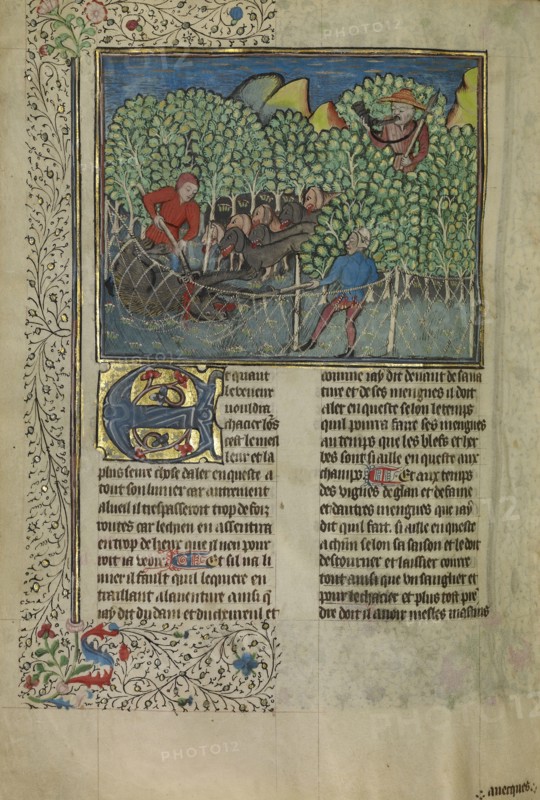 Et quant
le veneur
vouldra
chacier lors
cest le meil
leur et la
plus seure chose daler en queste a
tout son limier car autrement
a lueil il trespasseroit trop de foiz
toutes car le chien en assentira
en trop de lieux que il nen pour
roit ia veoir Et sil na li
mier il fault quil le quiere en
traillant alauenture ainsi q
iay dit du dain et du cheureul et
comme iay dit deuant de sa na
ture et de ses mengues il doit
aler en queste selon le temps
quil pourra faire ses mengues
au temps que les blefs et her
bes sont si aille en queste aux
champs Et aux temps
des vignes de glan et de faine
et dautres mengues que iay
dit quil fait si aille en queste
a chun selon sa saison et le doit
destourner et laissier courre
tout ainsi que un sanglier et
pour le chacier et plus tost pre
dre doit il auoir mesles mastins
auecques
PHOTO12